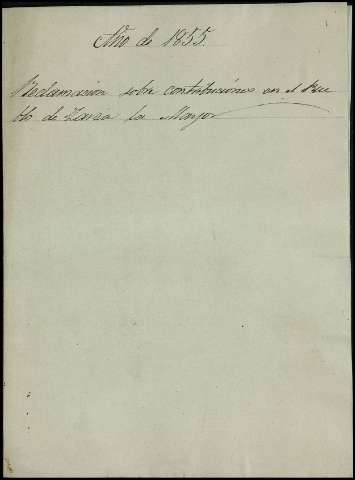 Año de 1855.
Reclamacion sobre contribuciones en el Pue
blo de Zarza la Mayor